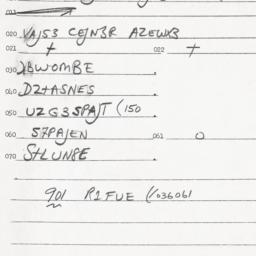 020 VAJS3 CEJNBR AZEWXB
021 + 022 +
030 XBWOMBE
040 DZ+ASNES
050 UZG3SPAJT (150
060 S7PAJEN 061 O
070 S+LUN8E
901 R1FUE (/036061